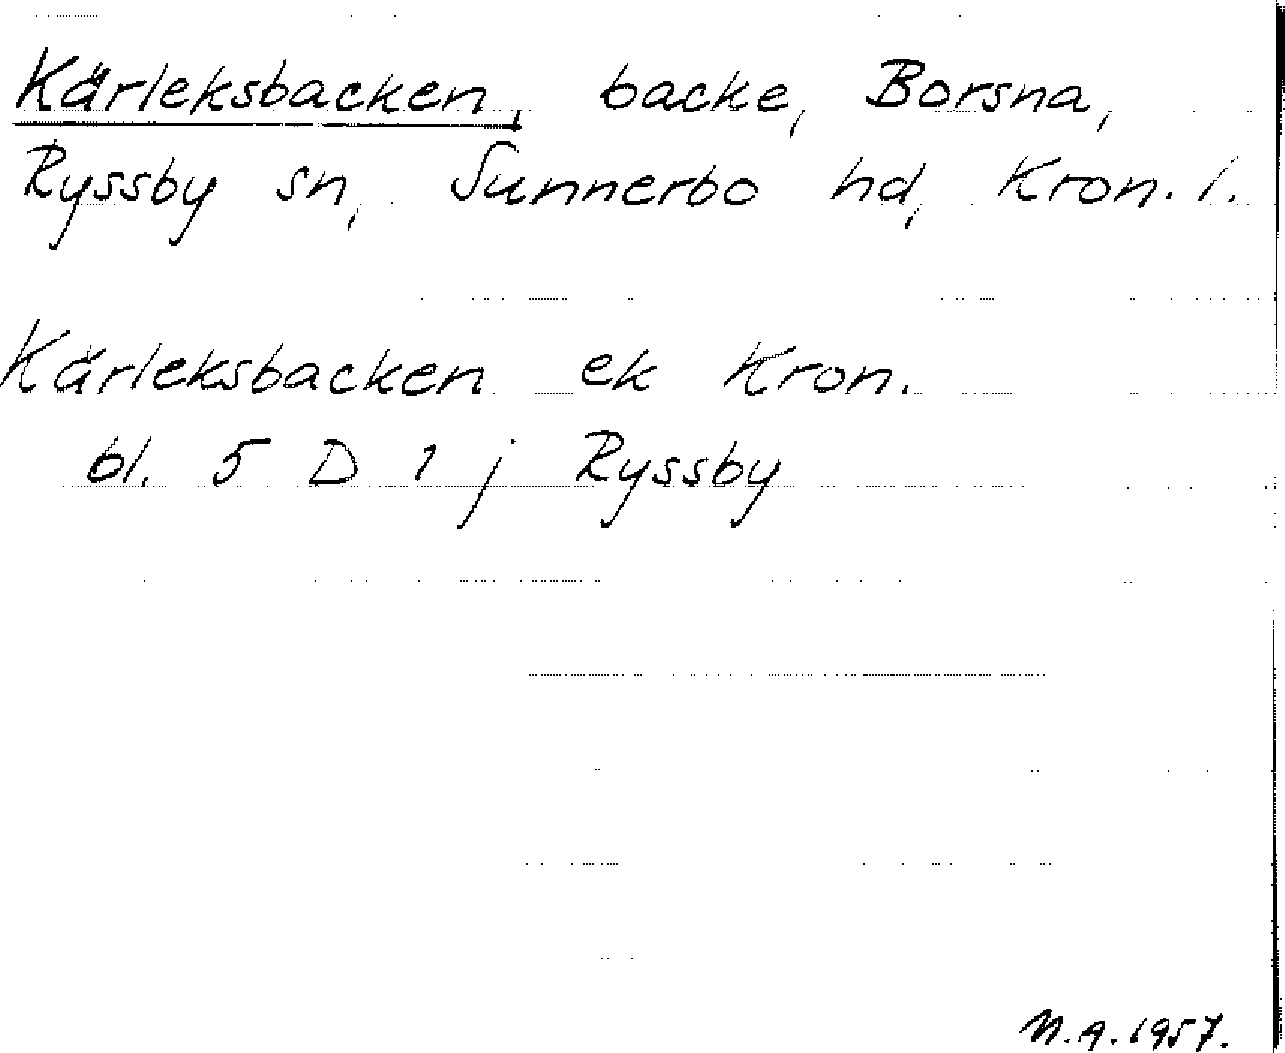 Kärleksbacken, backe, Borsna,
Ryssby sn, Sunnerbo hd, Kron. l.
Kärleksbacken ek Kron.
bl. 5 D 1 j Ryssby
N.A. 1957.